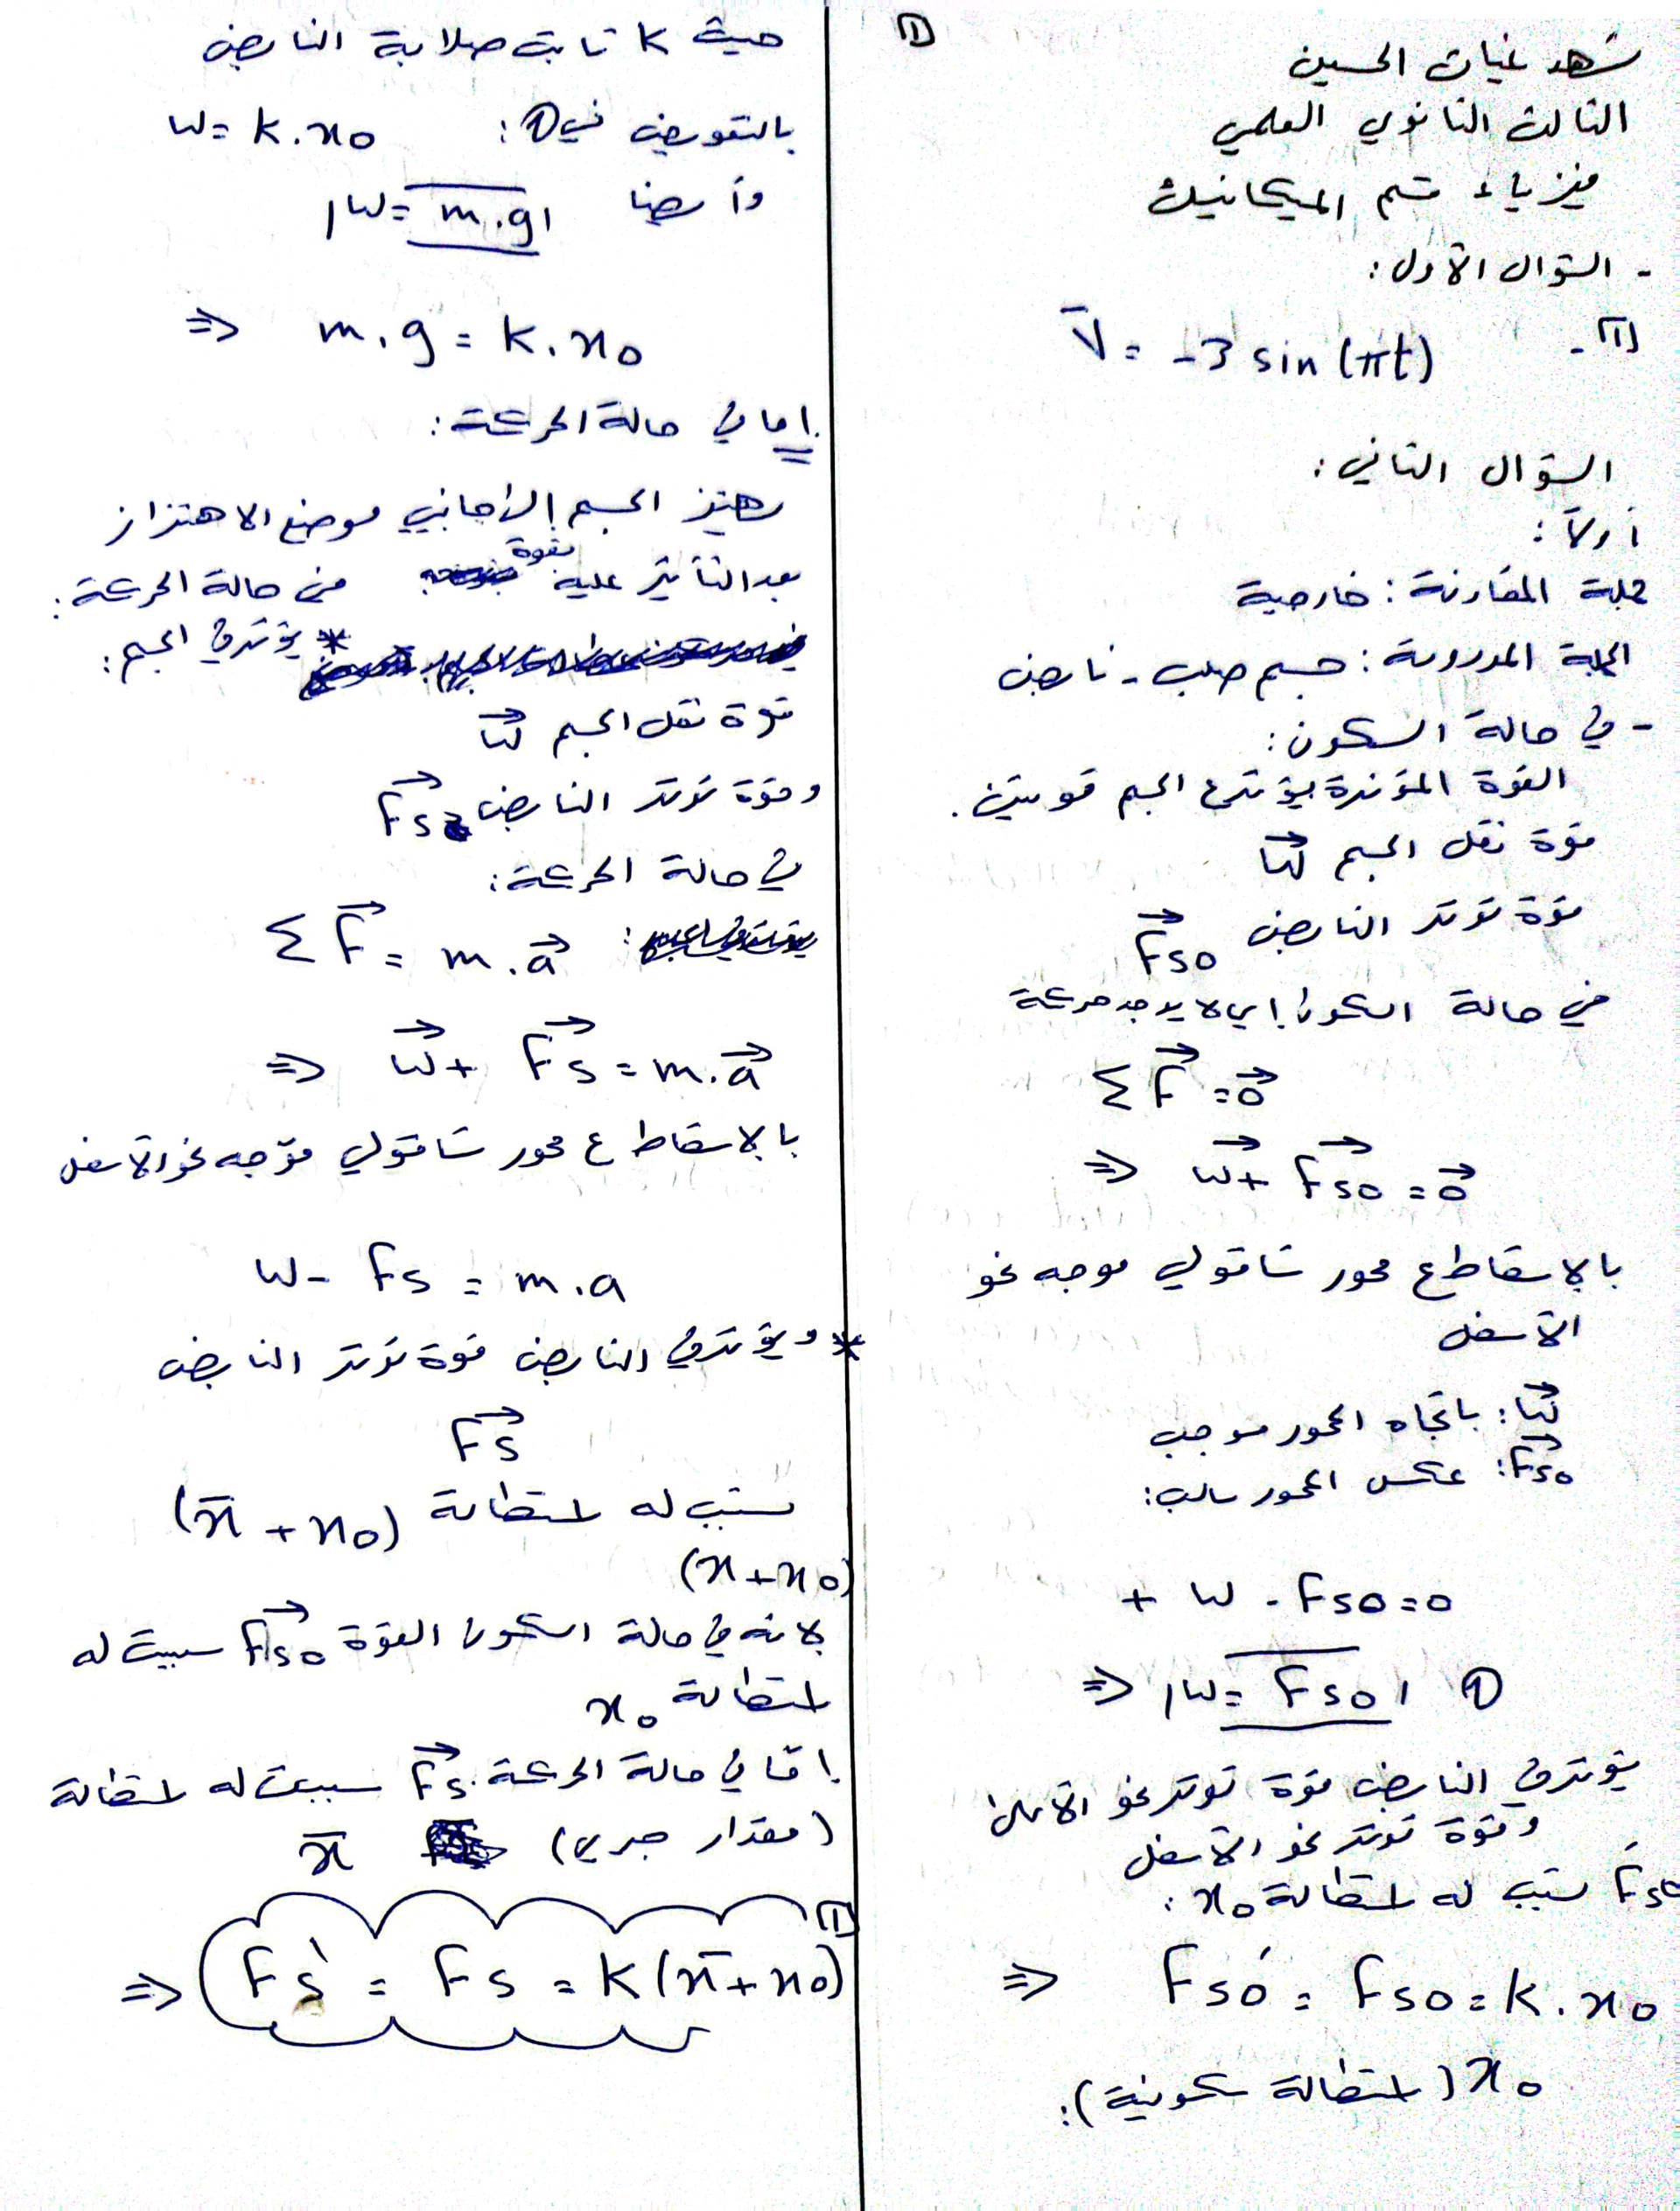 (1)
شهد غياث الحسين
الثالث الثانوي العلمي
فيزياء قسم الميكانيك
- السؤال الأول:
(1 - V̄ = -3 sin(πt)
السؤال الثاني:
أولاً:
جملة المقارنة: خارجية
الجملة المدروسة: جسم صلب - نابض
- في حالة السكون:
القوة المؤثرة يؤثر ع الجسم قوتين.
قوة ثقل الجسم W⃗
قوة توتر النابض F⃗s0
في حالة السكون أي لا يوجد حركة
Σ F⃗ = 0⃗
⇒ W⃗ + F⃗s0 = 0⃗
بالاسقاط ع محور شاقولي موجه نحو
الأسفل
W⃗: باتجاه المحور موجب
F⃗s0: عكس المحور سالب:
+ W - Fs0 = 0
⇒ |W = Fs0| ①
يؤثر في النابض قوة توتر نحو الأعلى
وقوة توتر نحو الأسفل
F́s0 تسبب له استطالة x0:
⇒ Fs0́ = Fs0 = k . x0
x0 (استطالة سكونية):
حيث k ثابت صلابة النابض
بالتعويض في ①: W = k . x0
وأيضا |W = m.g|
⇒ m . g = k . x0
اما في حالة الحركة:
يهتز الجسم إلى جانبي موضع الاهتزاز
بعد التأثير عليه بقوة في حالة الحركة:
* يؤثر في الجسم:
قوة ثقل الجسم W⃗
وقوة توتر النابض F⃗s
في حالة الحركة:
Σ F⃗ = m . a⃗
⇒ W⃗ + F⃗s = m . a⃗
بالاسقاط ع محور شاقولي موجه نحو الأسفل
W - Fs = m . a
* ويؤثر في النابض قوة توتر النابض
F⃗ś
تسبب له استطالة (x̄ + x0)
(x + x0)
لانه في حالة السكون القوة F⃗́s0 سببت له
استطالة x0
اما في حالة الحركة F⃗́s سببت له استطالة
(مقدار جبري) x̄
(1)
⇒ Fś = Fs = k(x̄ + x0)